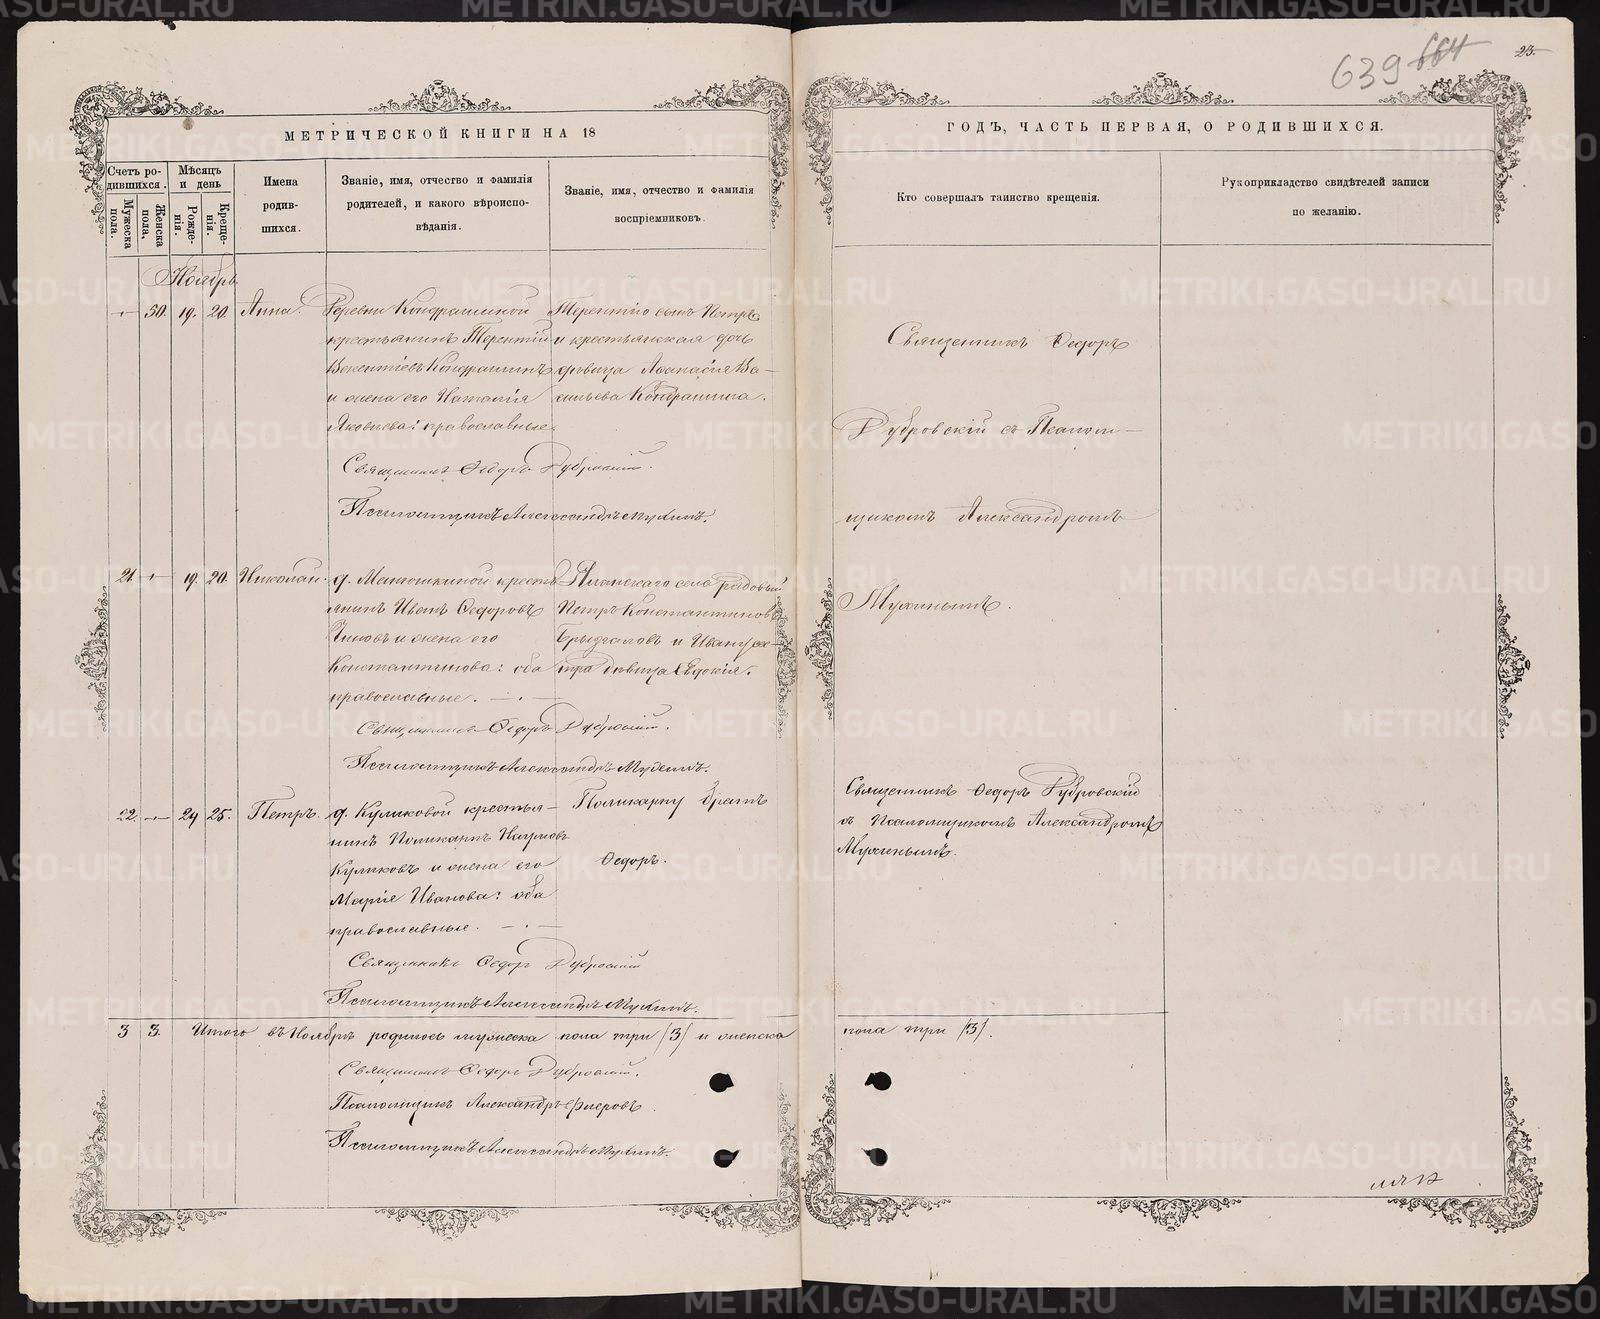 639 664
23.
МЕТРИЧЕСКОЙ КНИГИ НА 18
Счетъ родившихся.
Мужеска пола.
Женска пола.
Мѣсяцъ и день
Рожденія.
Крещенія.
Имена родившихся.
Званіе, имя, отчество и фамилія
родителей, и какого вѣроиспо-
вѣданія.
Званіе, имя, отчество и фамилія
воспріемниковъ.
Ноябрь
50. 19. 20. Анна.
Деревни Кондрашиной
крестьянинъ Терентій
Кондрашинъ
и жена его Наталія
Яковлева: православные.
Терентію сынъ Петръ
и крестьянская дочь
дѣвица Аѳанасія Ва-
сильева Кондрашина.
Священникъ Ѳедоръ Дубровскій.
Псаломщикъ Александръ Мухинъ.
21. 19. 20. Николай.
д. Манюшкиной кресть-
янинъ Иванъ Ѳедоровъ
и жена его
Константинова: оба
православные.
села рядовый
Петръ Константиновъ
Брызгаловъ и Ивану сес-
тра дѣвица Евдокія.
Священникъ Ѳедоръ Дубровскій.
Псаломщикъ Александръ Мухинъ.
22. 24 25. Петръ.
д. Куликовой крестья-
нинъ Поликарпъ Наумовъ
Куликовъ и жена его
Марія Иванова: оба
православные.
Поликарпу братъ
Ѳедоръ.
Священникъ Ѳедоръ Дубровскій
Псаломщикъ Александръ Мухинъ.
3 3. Итого въ Ноябрѣ родилось мужеска пола три /3/ и женска
Священникъ Ѳедоръ Дубровскій.
Псаломщикъ Александръ
Псаломщикъ Александръ Мухинъ.
ГОДЪ, ЧАСТЬ ПЕРВАЯ, О РОДИВШИХСЯ.
Кто совершалъ таинство крещенія.
Рукоприкладство свидѣтелей записи
по желанію.
Священникъ Ѳедоръ
Дубровскій съ Псалом-
щикомъ Александромъ
Мухинымъ.
Священникъ Ѳедоръ Дубровскій
съ Псаломщикомъ Александромъ
Мухинымъ.
пола три /3/.
METRIKI.GASO-URAL.RU